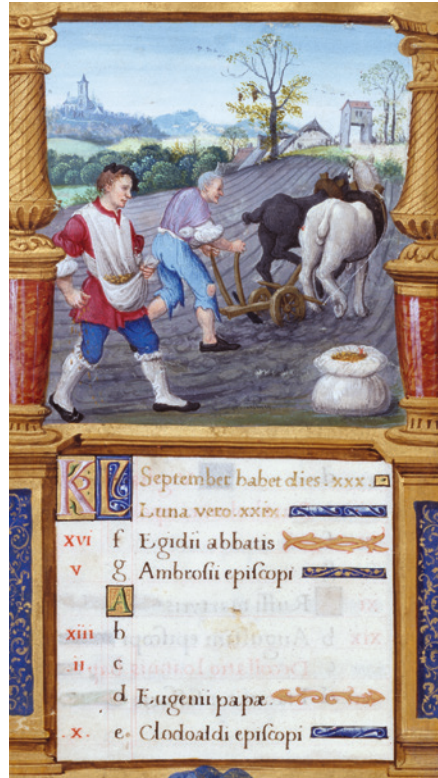 KL September habet dies .xxx.
Luna vero .xxix.
xvi f Egidii abbatis
v g Ambrosii episcopi
A
xiii b
ii c
d Eugenii papæ.
.x. e Clodoaldi episcopi